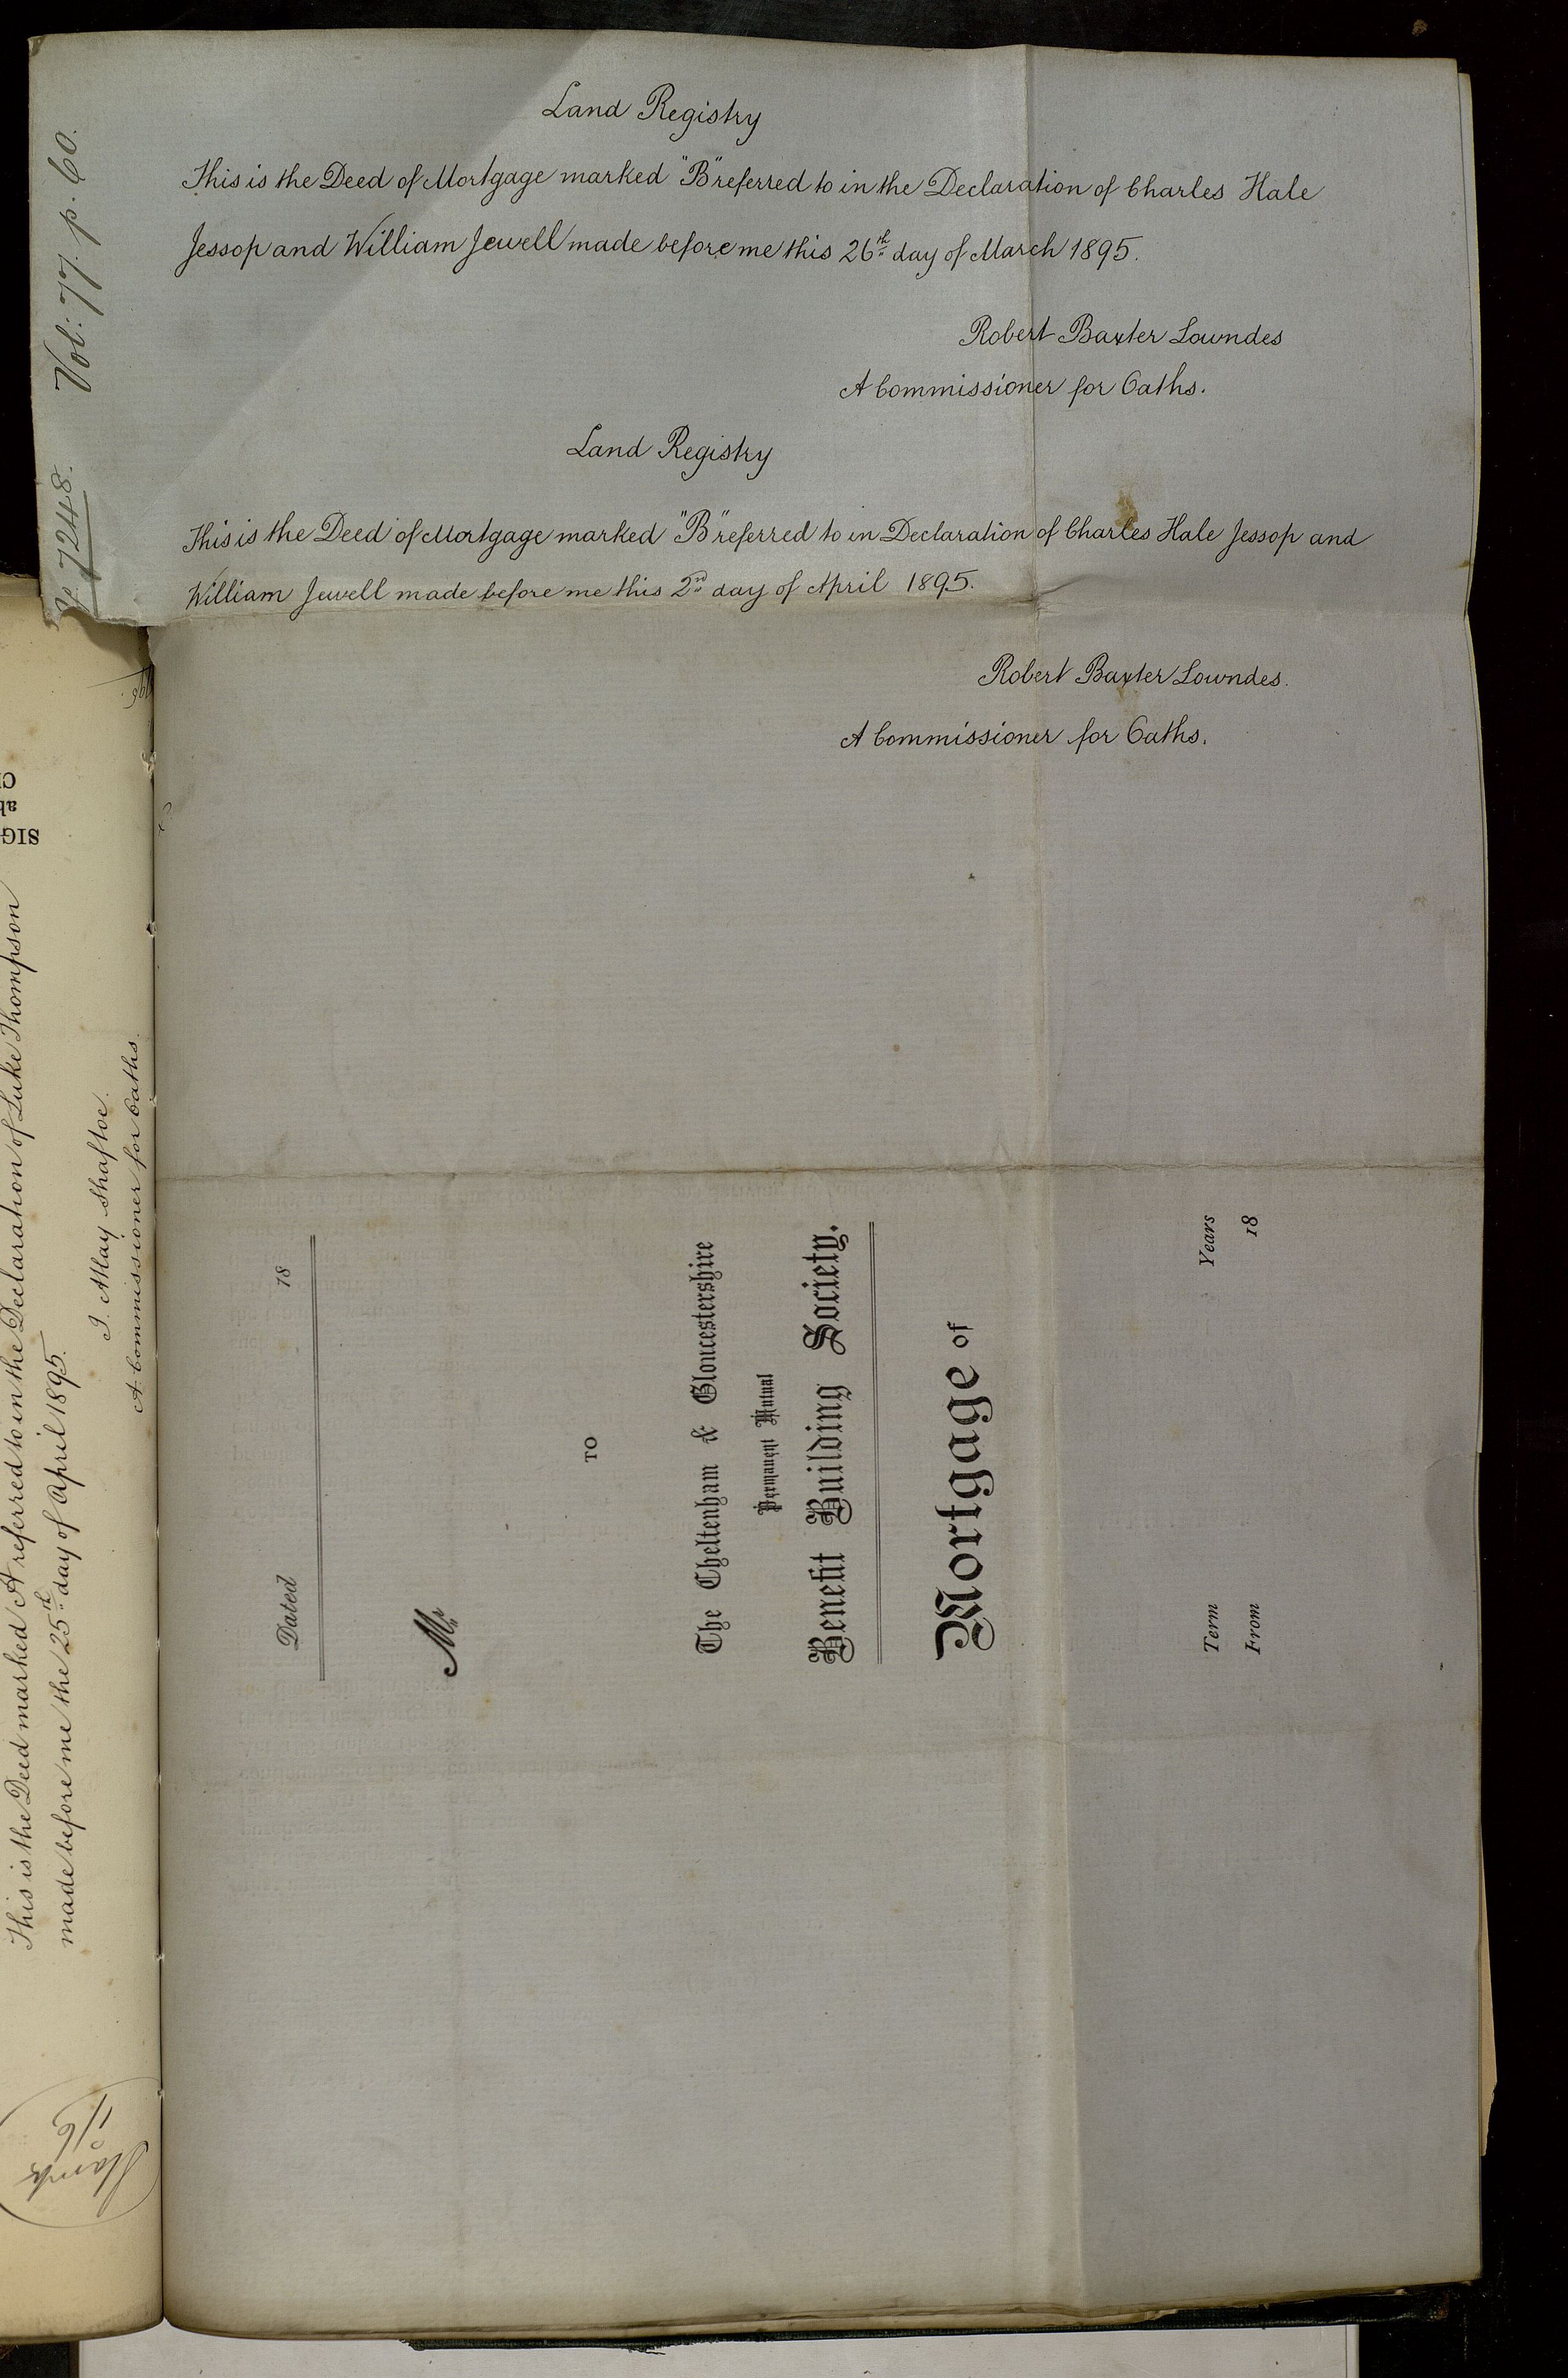 Land Registry
This is the Deed of Mortgage marked "B" referred to in the Declaration of Charles Hale
Jessop and William Jewell made before me this 26th day of March 1895.
Robert Baxter Lowndes
A Commissioner for Oaths.
Land Registry
This is the Deed of Mortgage marked "B" referred to in Declaration of Charles Hale Jessop and
William Jewell made before me this 2nd day of April 1895.
Robert Baxter Lowndes.
A Commissioner for Oaths.
7248. Vol: 77. p. 60.
Dated 18
Mr
TO
The Cheltenham & Gloucestershire
Permanent Mutual
Benefit Building Society.
Mortgage of
Term Years
From 18
This is the Deed marked A referred to in the Declaration of Luke Thompson
made before me the 25th day of April 1895.
Shaftoe.
A Commissioner for Oaths.
SIG